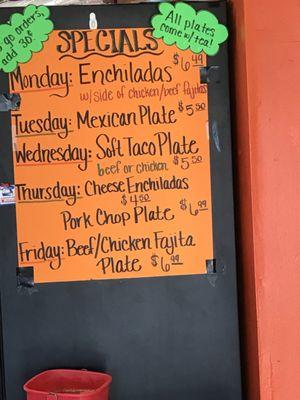 go orders,
add 30¢
All plates
come w/ tea!
SPECIALS
Monday: Enchiladas $6.49
w/ side of chicken/beef fajitas
Tuesday: Mexican Plate $5.50
Wednesday: Soft Taco Plate
beef or chicken $5.50
Thursday: Cheese Enchiladas
$4.50
Pork Chop Plate $6.99
Friday: Beef/Chicken Fajita
Plate $6.99